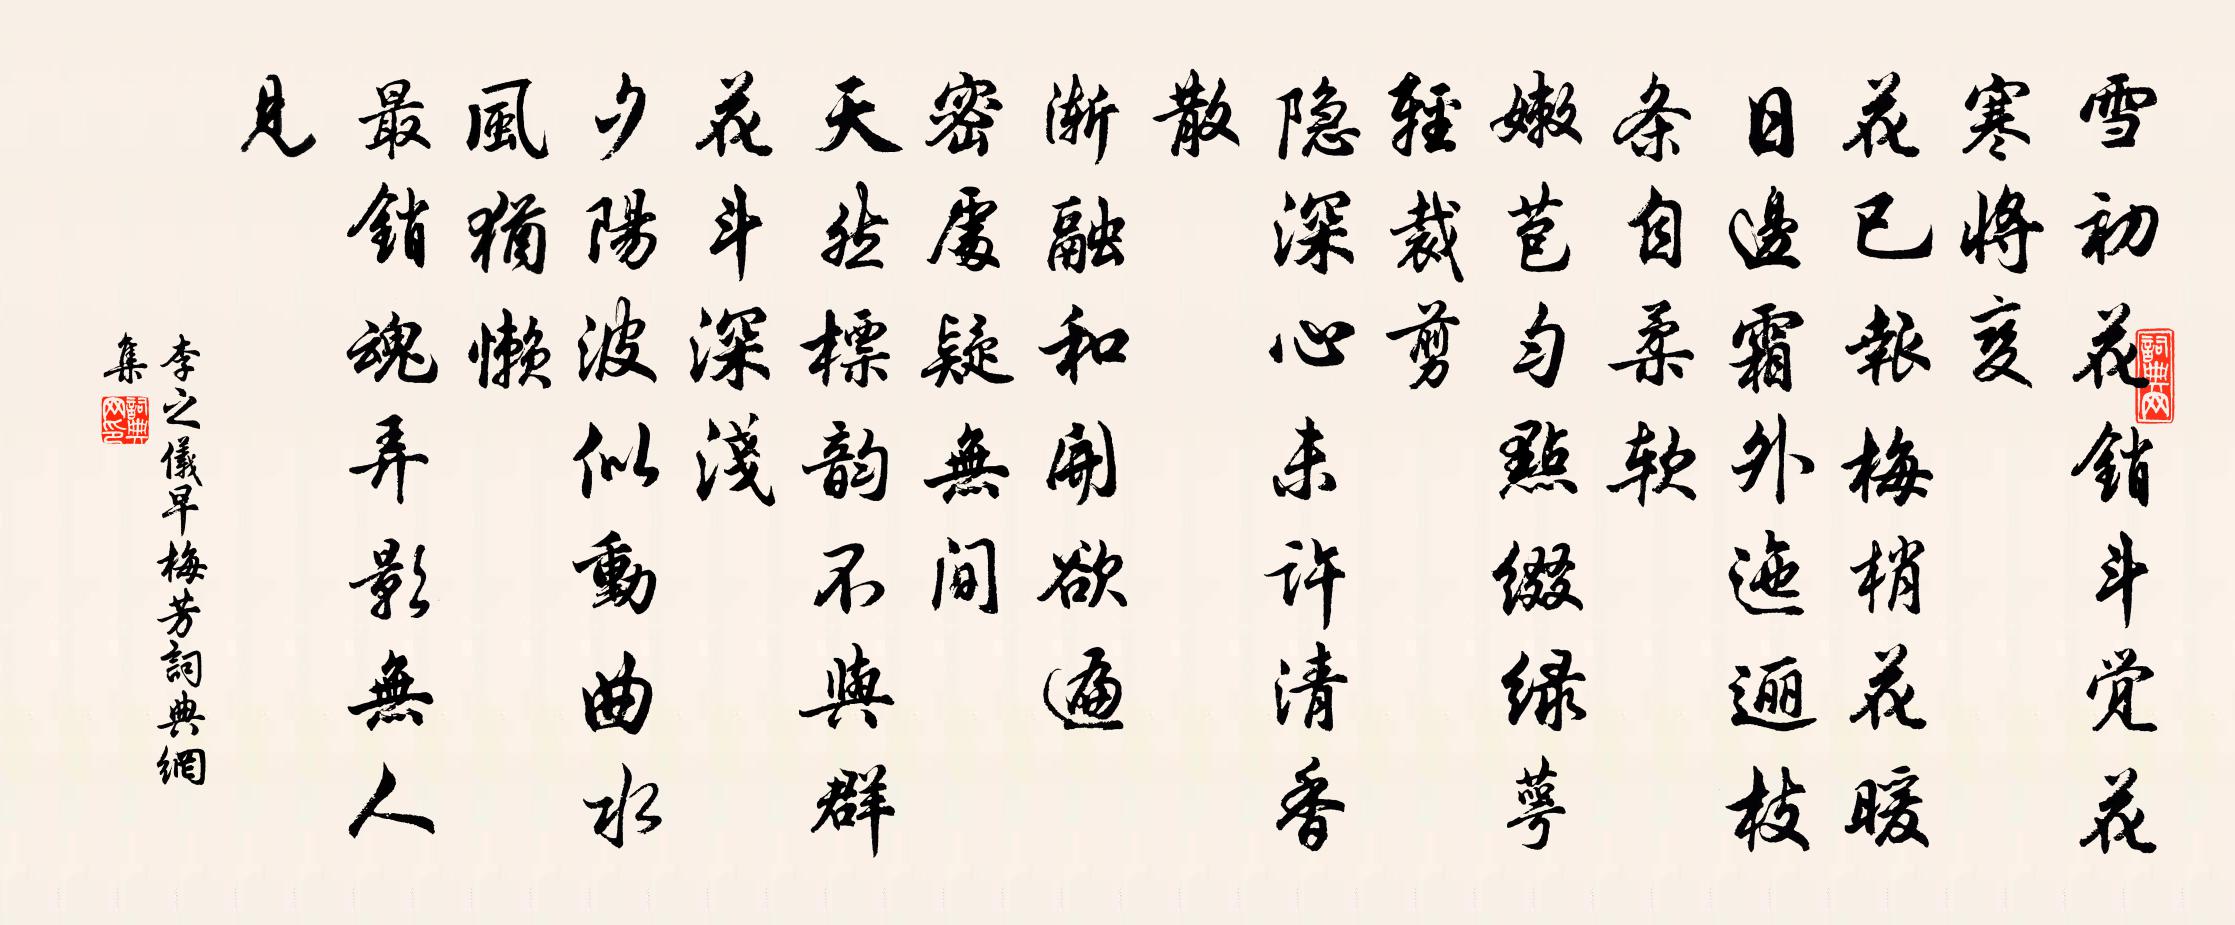 雪初花銷斗覚花
寒將变
花已報梅梢花暖
日邊霜外迤逦枝
条自柔软
嫩苞匀點缀绿萼
輕裁剪
隐深心未许清香
散
渐融和開欲遍
密處疑無间
天然標韵不與群
花斗深淺
夕陽波似動曲水
風猶懒
最銷魂弄影無人
見
李之儀早梅芳詞典網
集
詞典网
詞典网印